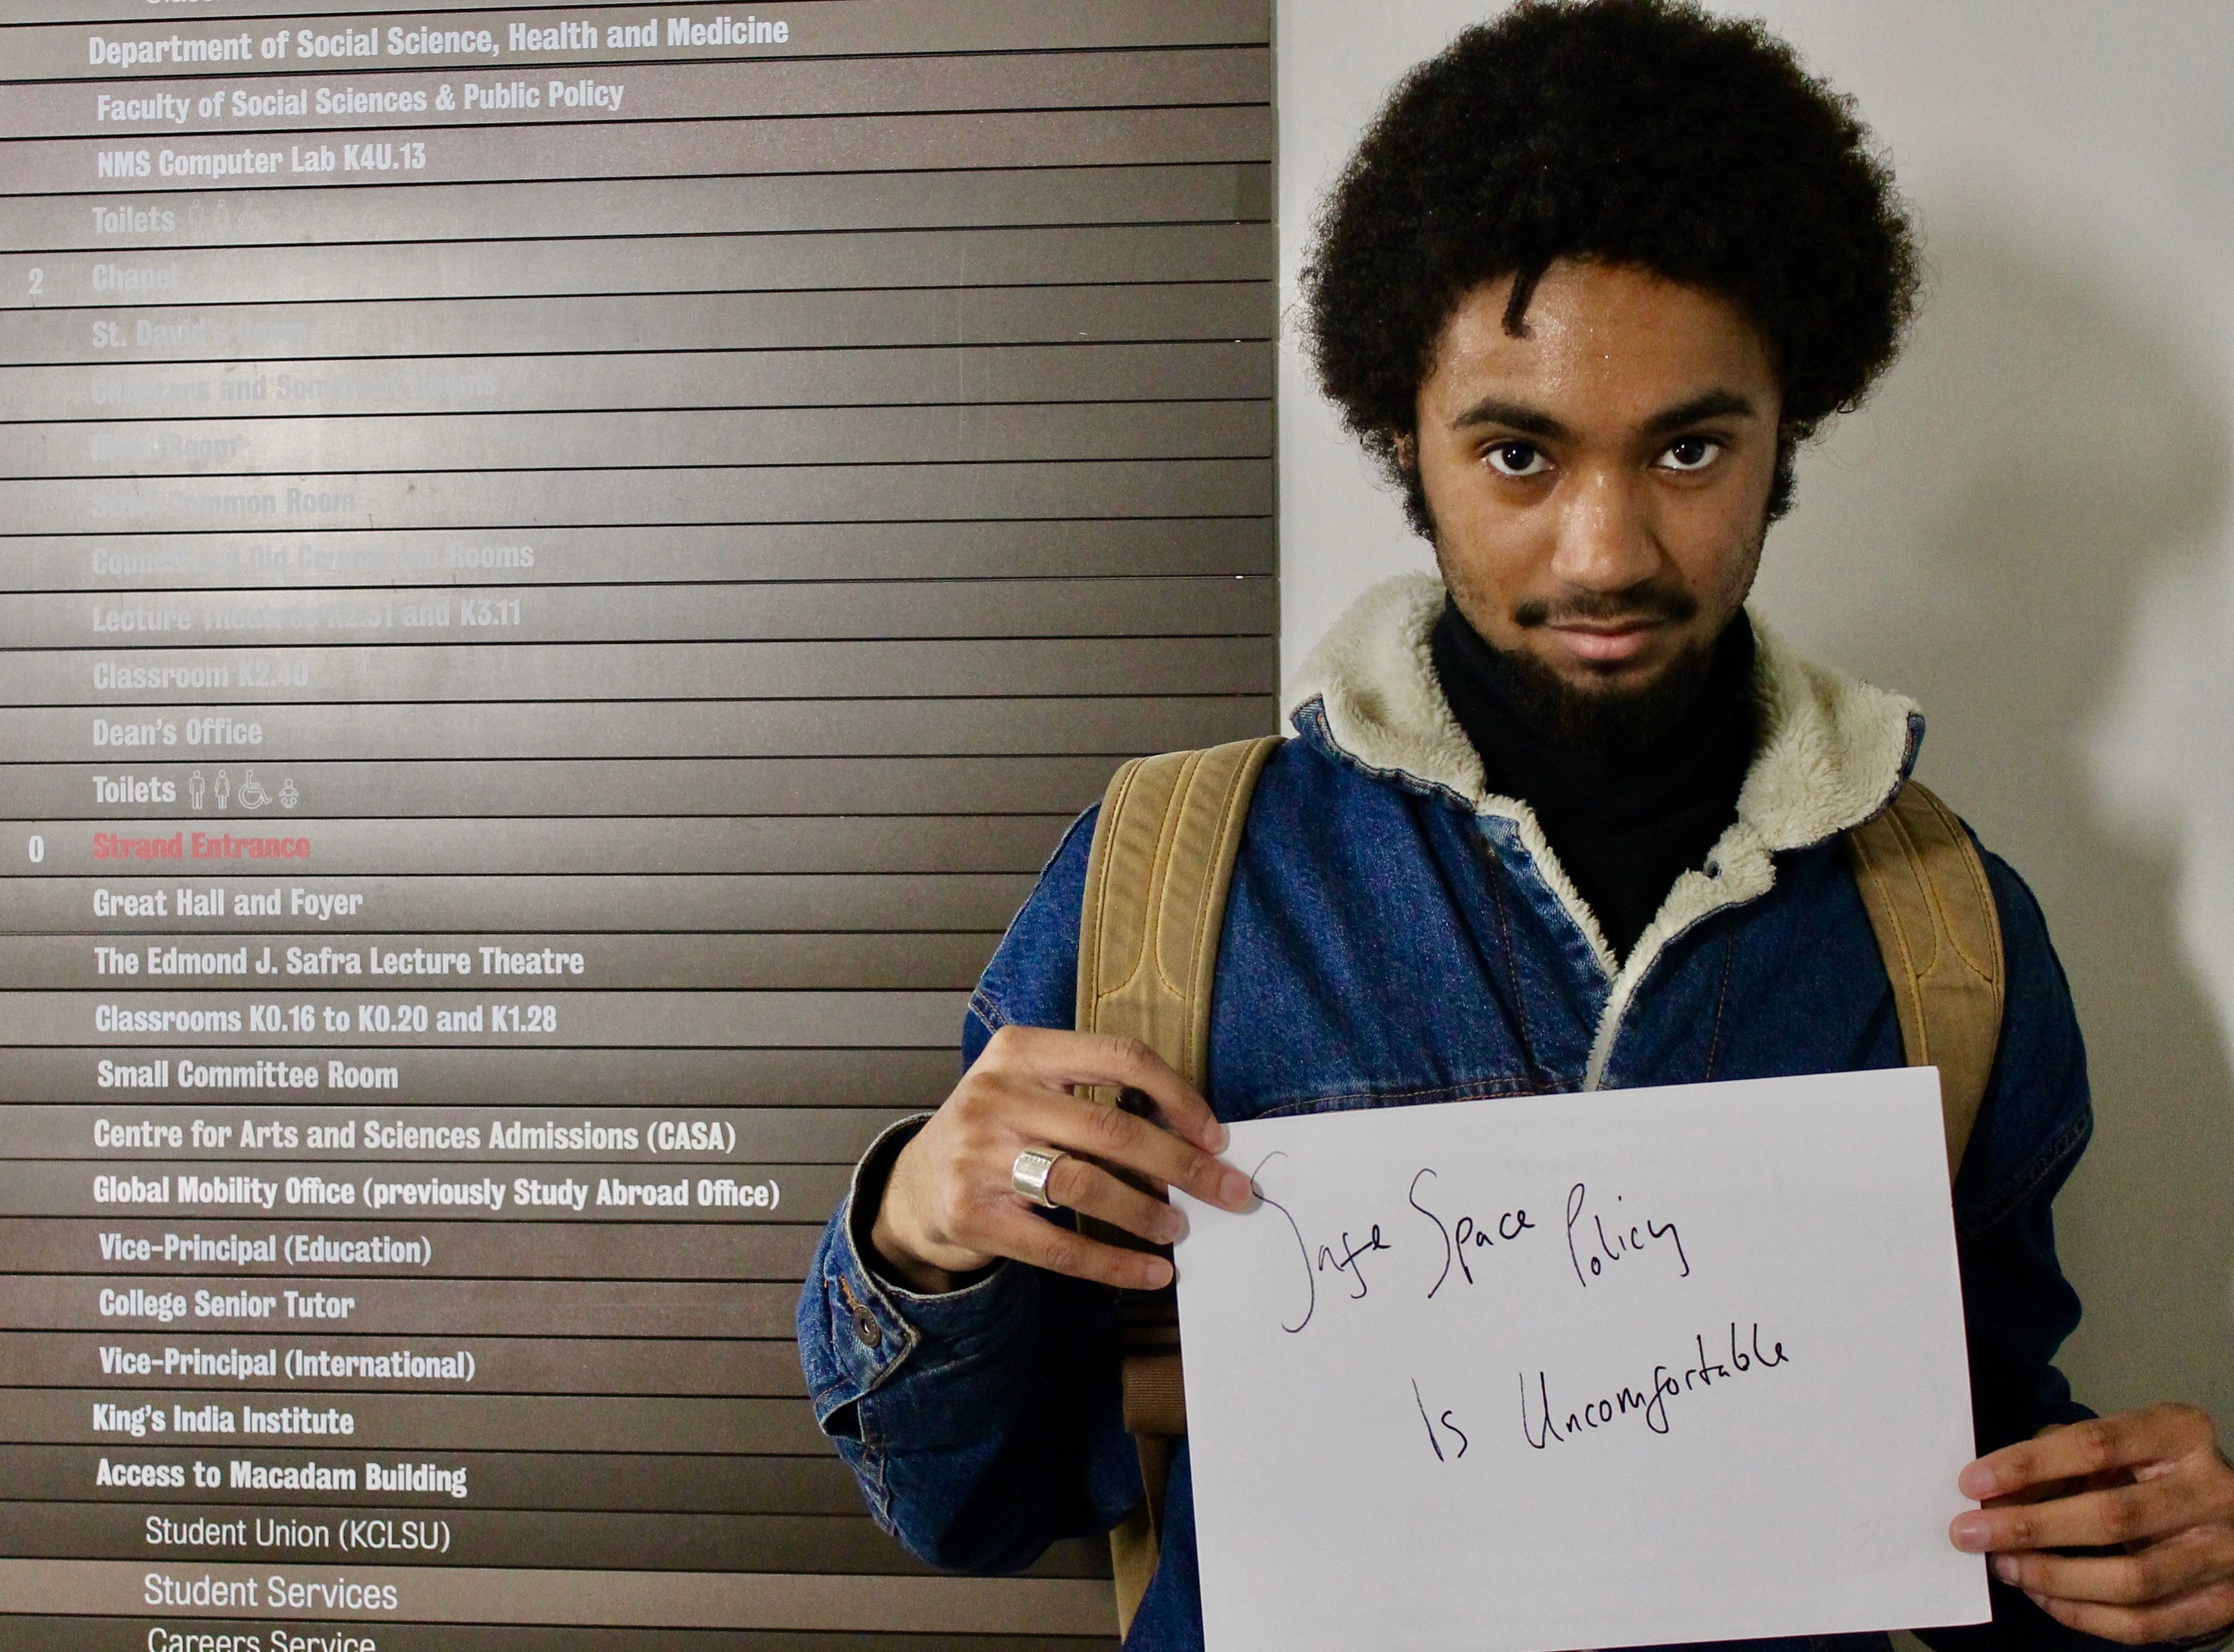 Department of Social Science, Health and Medicine
Faculty of Social Sciences & Public Policy
NMS Computer Lab K4U.13
Toilets
2 Chapel
St. David's Room
and Rooms
Room
Common Room
Rooms
Lecture Theatres K2.31 and K3.11
Classroom K2.40
Dean's Office
Toilets
0 Strand Entrance
Great Hall and Foyer
The Edmond J. Safra Lecture Theatre
Classrooms K0.16 to K0.20 and K1.28
Small Committee Room
Centre for Arts and Sciences Admissions (CASA)
Global Mobility Office (previously Study Abroad Office)
Vice-Principal (Education)
College Senior Tutor
Vice-Principal (International)
King's India Institute
Access to Macadam Building
Student Union (KCLSU)
Student Services
Careers Service
Safe Space Policy
Is Uncomfortable